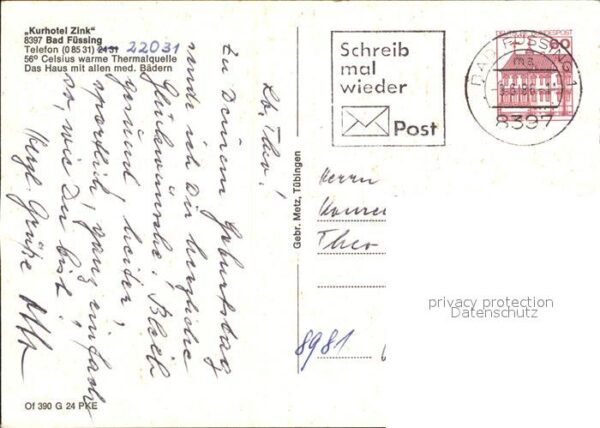 „Kurhotel Zink"
8397 Bad Füssing
Telefon (0 85 31) 21 31 22031
56° Celsius warme Thermalquelle
Das Haus mit allen med. Bädern
Lb. Theo!
Zu Deinem Geburtstag
sende ich Dir herzliche
Glückwünsche! Bleib
gesund, heiter,
sportlich, ganz einfach
so, wie Du bist!
Herzl. Grüße
Of 390 G 24 PKE
Gebr. Metz, Tübingen
Schreib
mal
wieder
Post
BAD FÜSSING 1
8397
60
Herrn
Theo
8981
privacy protection
Datenschutz